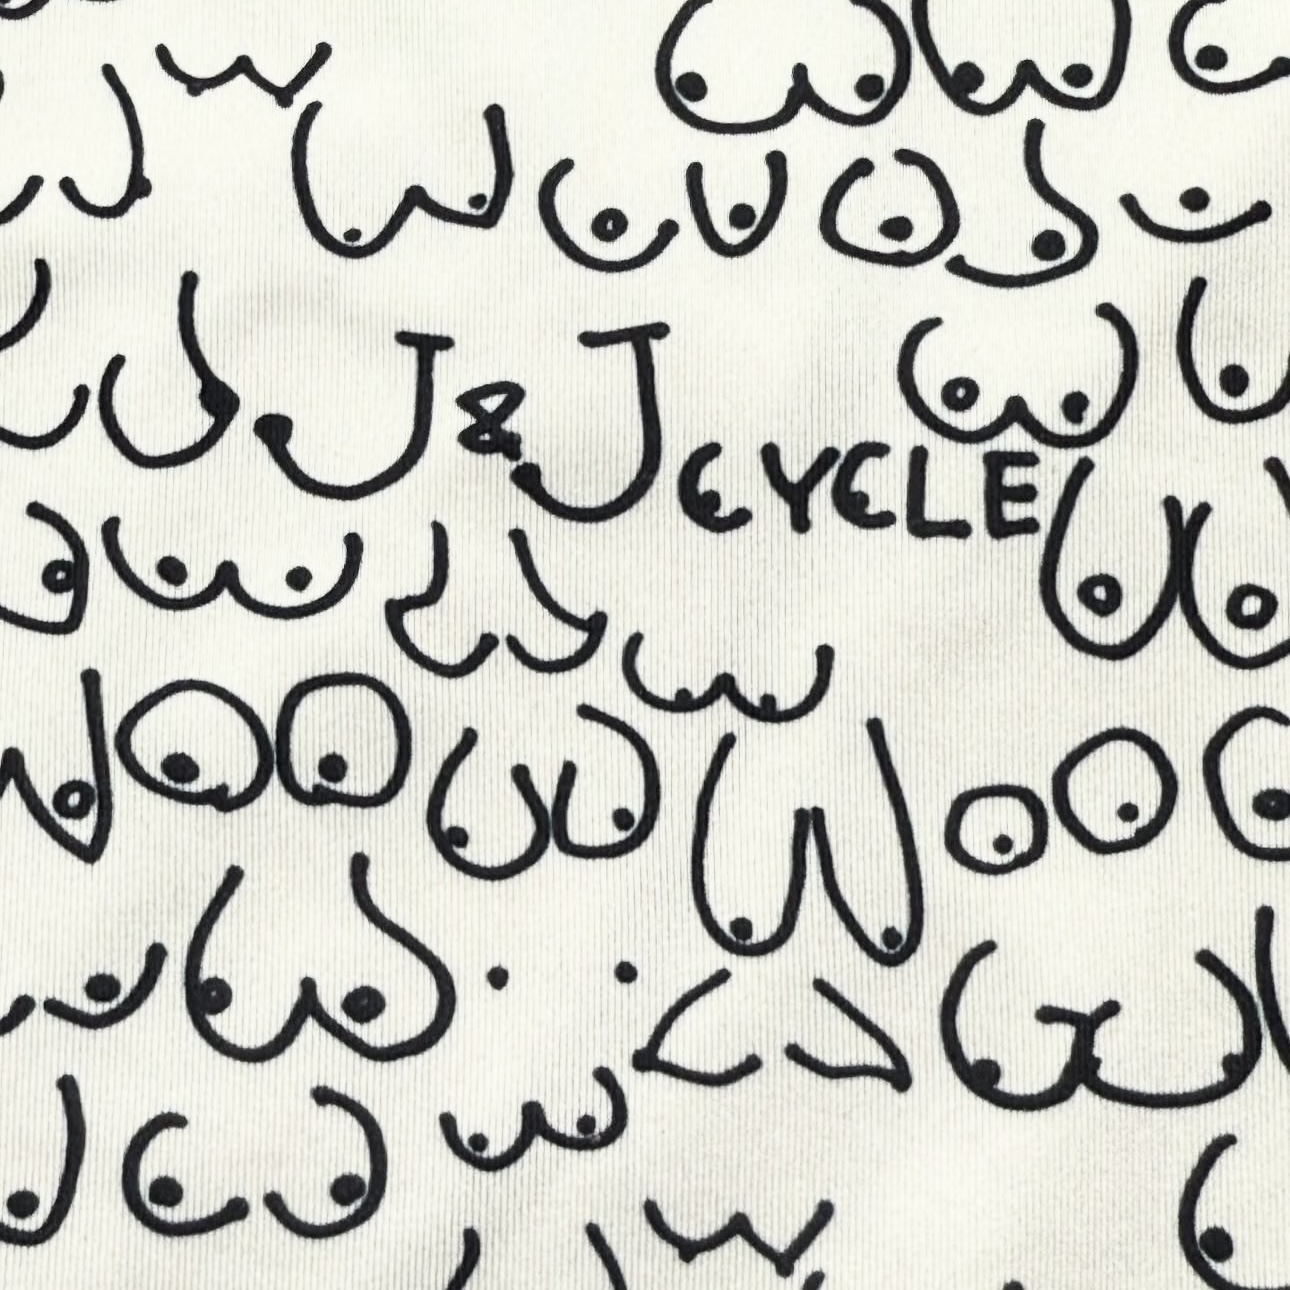 J & J
CYCLE